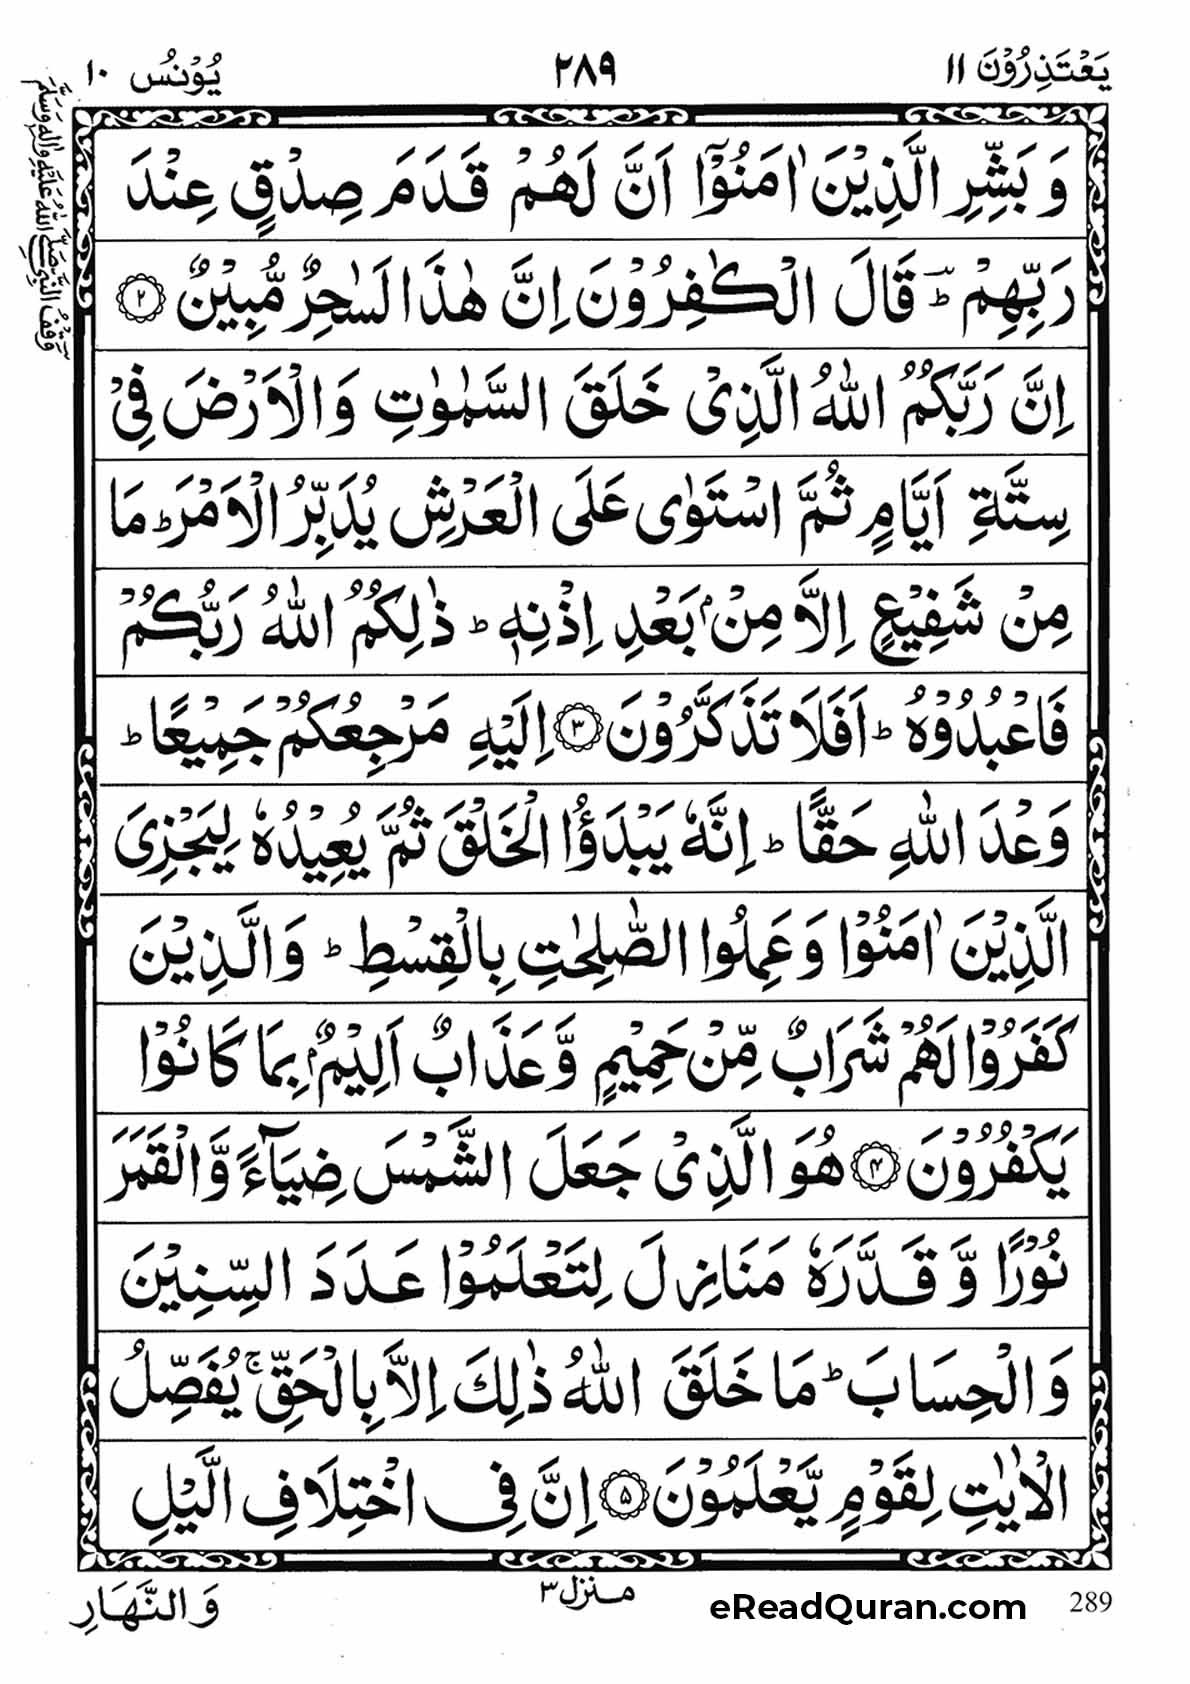 یَعْتَذِرُوْنَ ۱۱
۲۸۹
یُوْنُسُ ۱۰
وَقْفُ النَّبِیِّ صَلَّی اللّٰهُ عَلَیْهِ وَاٰلِهٖ وَسَلَّمَ
وَ بَشِّرِ الَّذِیْنَ اٰمَنُوْۤا اَنَّ لَهُمْ قَدَمَ صِدْقٍ عِنْدَ
رَبِّهِمْ ؔؕ قَالَ الْكٰفِرُوْنَ اِنَّ هٰذَا لَسٰحِرٌ مُّبِیْنٌ ۲
اِنَّ رَبَّكُمُ اللّٰهُ الَّذِیْ خَلَقَ السَّمٰوٰتِ وَالْاَرْضَ فِیْ
سِتَّةِ اَیَّامٍ ثُمَّ اسْتَوٰی عَلَی الْعَرْشِ یُدَبِّرُ الْاَمْرَ ؕ مَا
مِنْ شَفِیْعٍ اِلَّا مِنْۢ بَعْدِ اِذْنِهٖ ؕ ذٰلِكُمُ اللّٰهُ رَبُّكُمْ
فَاعْبُدُوْهُ ؕ اَفَلَا تَذَكَّرُوْنَ ۳ اِلَیْهِ مَرْجِعُكُمْ جَمِیْعًا ؕ
وَعْدَ اللّٰهِ حَقًّا ؕ اِنَّهٗ یَبْدَؤُا الْخَلْقَ ثُمَّ یُعِیْدُهٗ لِیَجْزِیَ
الَّذِیْنَ اٰمَنُوْا وَ عَمِلُوا الصّٰلِحٰتِ بِالْقِسْطِ ؕ وَالَّذِیْنَ
كَفَرُوْا لَهُمْ شَرَابٌ مِّنْ حَمِیْمٍ وَّ عَذَابٌ اَلِیْمٌۢ بِمَا كَانُوْا
یَكْفُرُوْنَ ۴ هُوَ الَّذِیْ جَعَلَ الشَّمْسَ ضِیَآءً وَّ الْقَمَرَ
نُوْرًا وَّ قَدَّرَهٗ مَنَازِلَ لِتَعْلَمُوْا عَدَدَ السِّنِیْنَ
وَ الْحِسَابَ ؕ مَا خَلَقَ اللّٰهُ ذٰلِكَ اِلَّا بِالْحَقِّ ۚ یُفَصِّلُ
الْاٰیٰتِ لِقَوْمٍ یَّعْلَمُوْنَ ۵ اِنَّ فِی اخْتِلَافِ الَّیْلِ
وَ النَّهَارِ
منزل ۳
eReadQuran.com
289